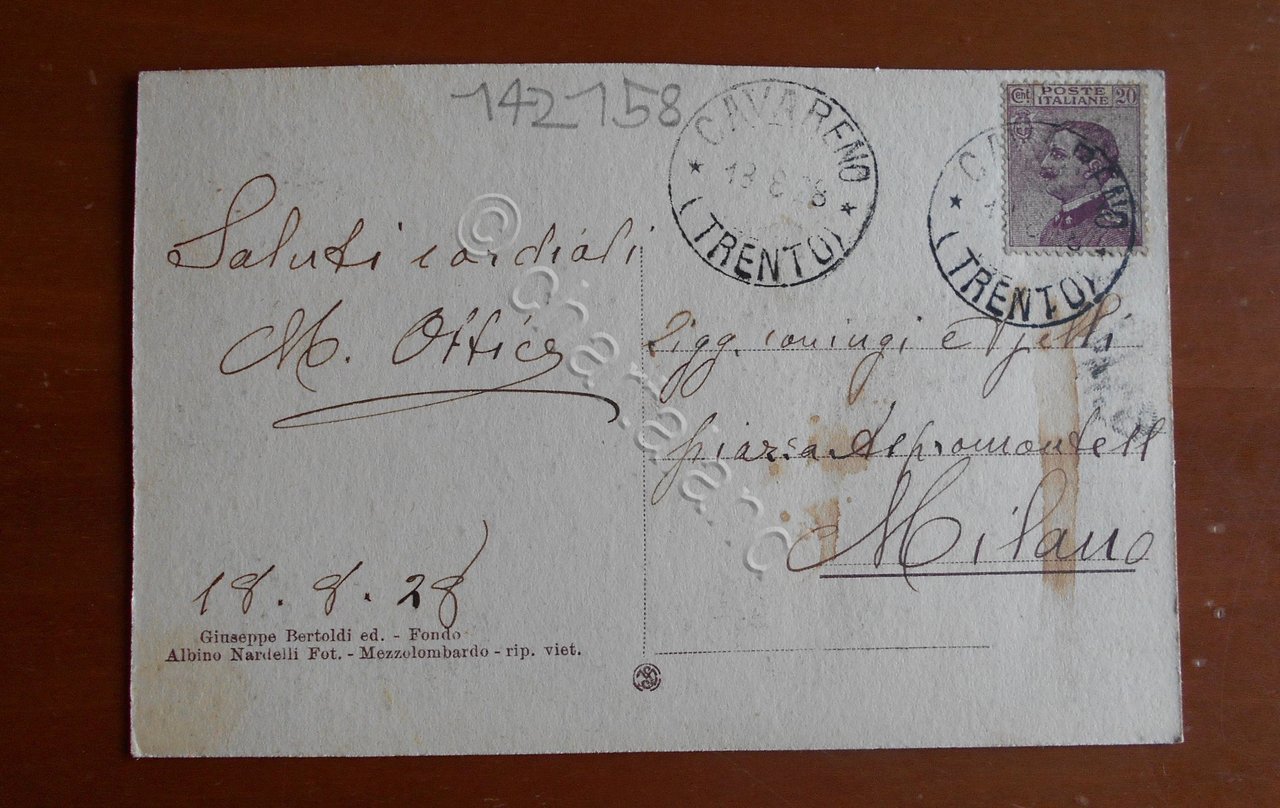 142158
CAVARENO
18 8 28
(TRENTO)
Cent. POSTE ITALIANE 20
CAVARENO
(TRENTO)
Saluti cordiali
M.
Sigg. coniugi
piazza Aspromonte 11
Milano
18. 8. 28
Giuseppe Bertoldi ed. - Fondo
Albino Nardelli Fot. - Mezzolombardo - rip. viet.
© ciarpari